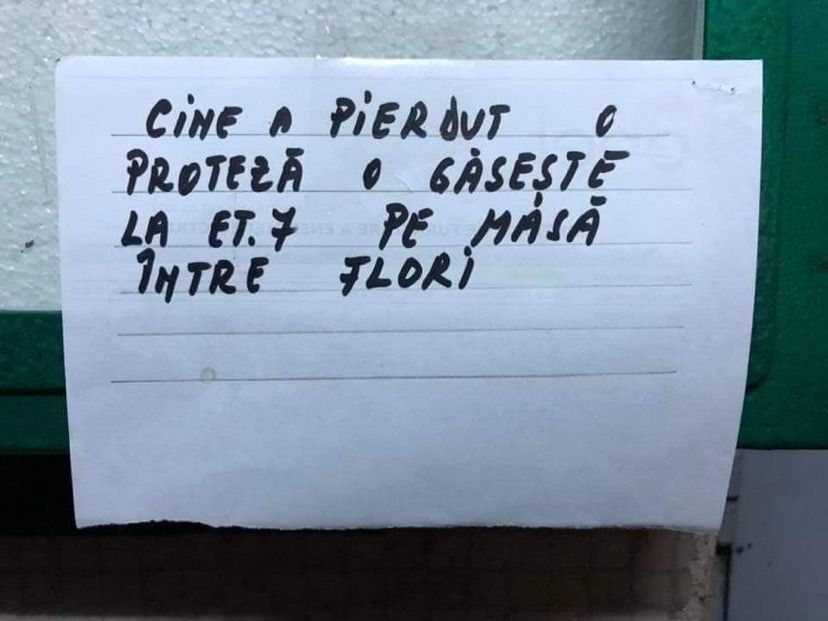 CINE A PIERDUT O
PROTEZĂ O GĂSEȘTE
LA ET.7 PE MĂSĂ
ÎNTRE FLORI